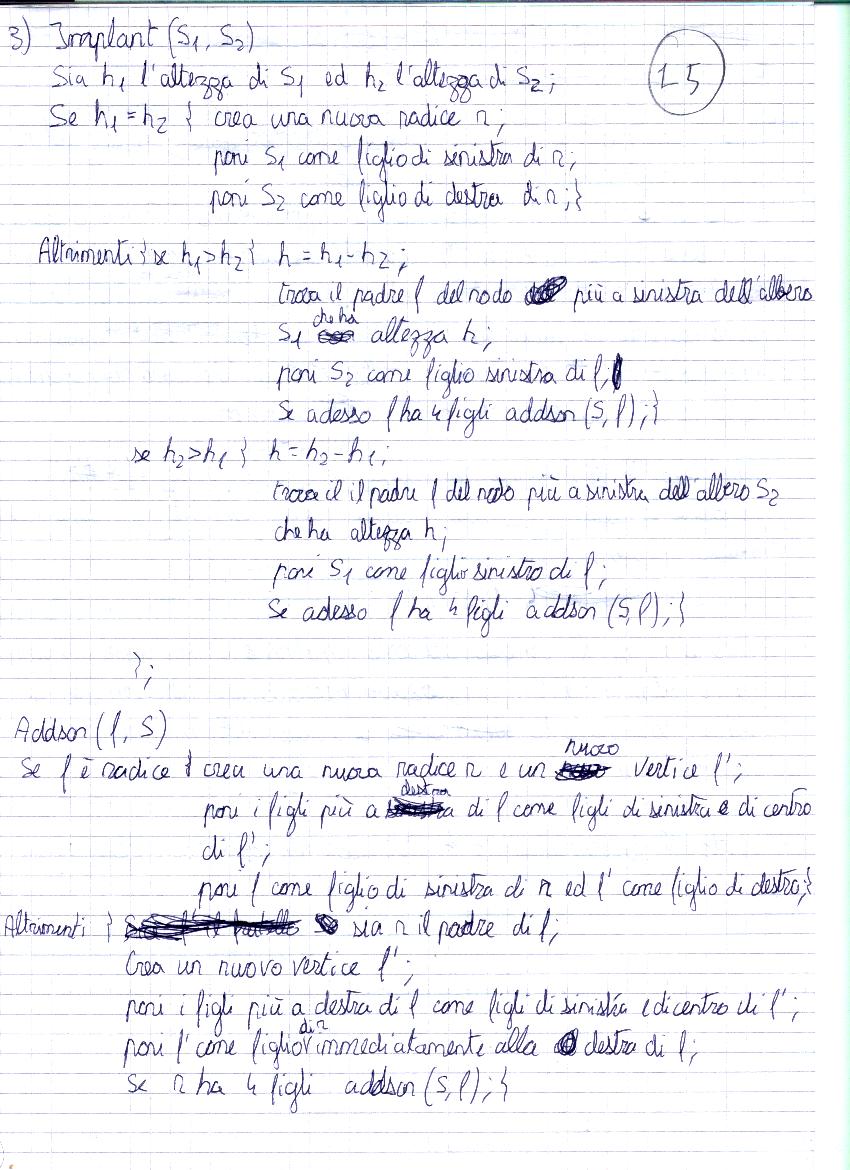 3) Implant (S1, S2)
Sia h1 l'altezza di S1 ed h2 l'altezza di S2;
15
Se h1 = h2 { crea una nuova radice r;
poni S1 come figlio di sinistra di r;
poni S2 come figlio di destra di r;}
Altrimenti { se h1>h2 { h = h1-h2;
trova il padre f del nodo più a sinistra dell'albero
S1 che ha altezza h;
poni S2 come figlio sinistra di f;
Se adesso f ha 4 figli addson (S, f);}
se h2>h1 { h = h2-h1;
trova il il padre f del nodo più a sinistra dell'albero S2
che ha altezza h;
poni S1 come figlio sinistro di f;
Se adesso f ha 4 figli addson (S,f);}
};
Addson (f, S)
Se f è radice { crea una nuova radice r e un nuovo vertice f';
poni i figli più a destra di f come figli di sinistra e di centro
di f';
poni f come figlio di sinistra di r ed f' come figlio di destra;}
Altrimenti { sia r il padre di f;
Crea un nuovo vertice f';
poni i figli più a destra di f come figli di sinistra e di centro di f';
poni f' come figlio di r immediatamente alla destra di f;
Se r ha 4 figli addson (S,f);}